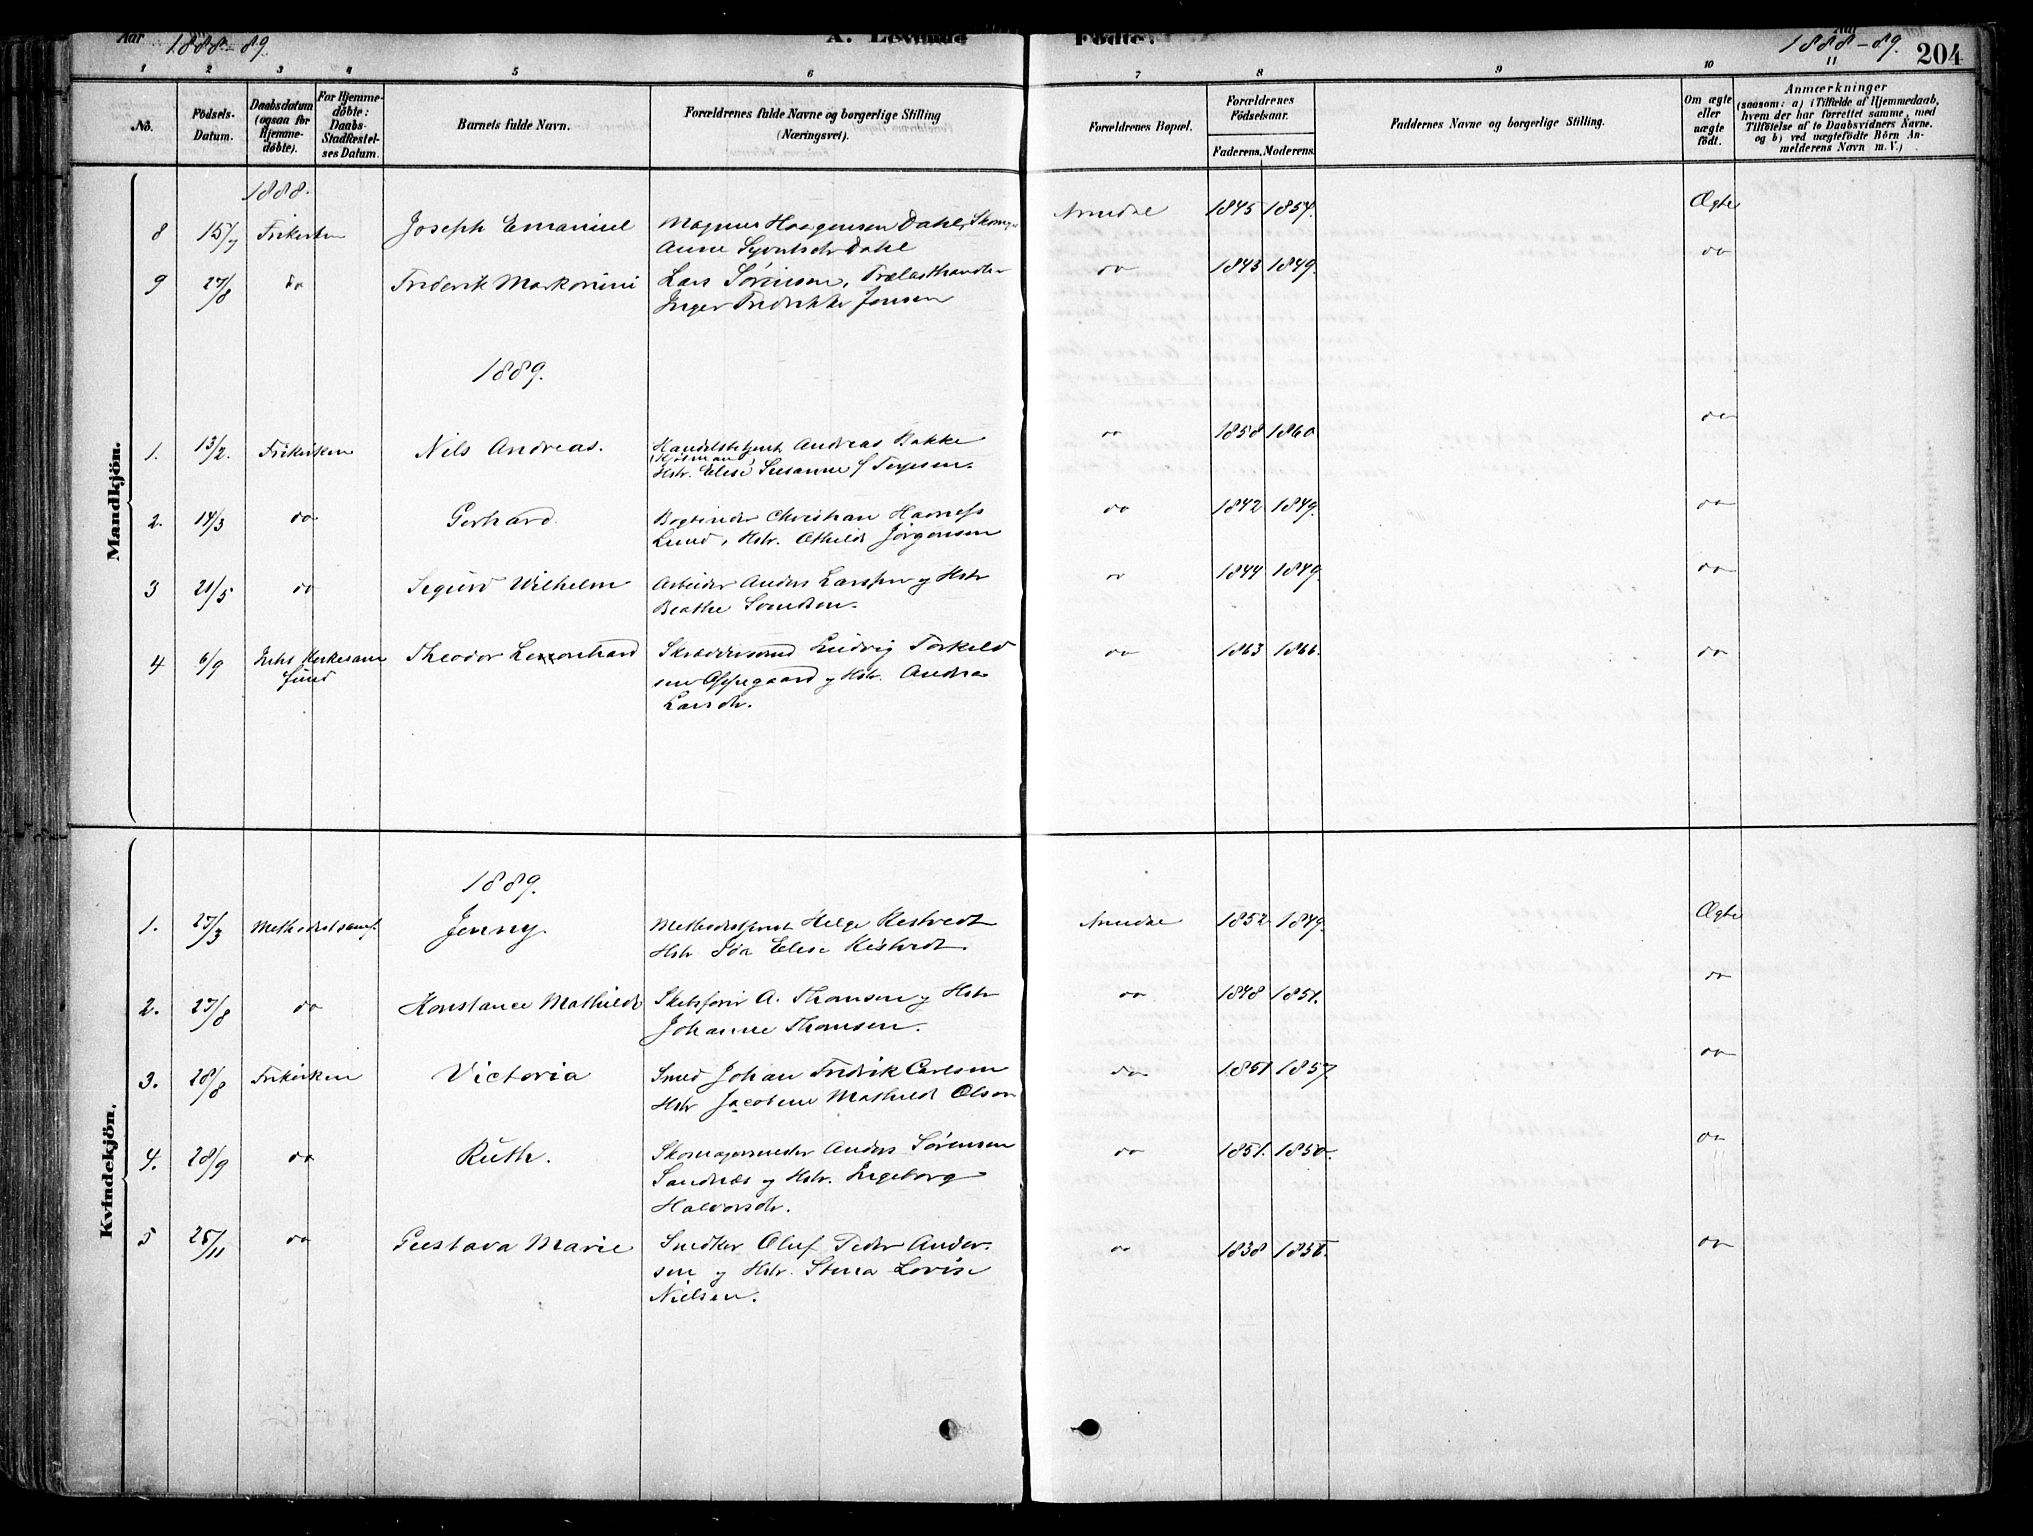 Aar 1888-89. A. Levende Fødte. Aar 1888-89. 204
1 2 3 4 5 6 7 8 9 10 11
No. Födsels-Datum. Daabsdatum (ogsaa for Hjemme-döbte). For Hjemme-döbte: Daabs-Stadfæstel-ses Datum. Barnets fulde Navn. Forældrenes fulde Navne og borgerlige Stilling (Næringsvei). Forældrenes Bopæl. Forældrenes Födselsaar. Faderens. Moderens. Faddernes Navne og borgerlige Stilling. Om ægte eller uægte födt. Anmærkninger (saasom: a) i Tilfælde af Hjemmedaab, hvem der har forrettet samme, med Tilföielse af to Daabsvidners Navne. og b) ved uægtefödte Börn Anmelderens Navn m. V.)
Mandkjön.
1888.
8 15/7 Frikirken Joseph Emanuel Magnus Haagensen Dahl, Skom. Arendal 1845 1854. Ægte
Anne Dahl
9 27/8 do Frederik Lars Sørensen, Trælasthandler do 1843 1849. do
Inger Fredrikke Jensen
1889.
1. 13/2. Frikirken Nils Andreas. Handelsbetjent Andreas Bakke do 1858 1860 do
Hstr. Elise Susanne f Terjesen.
2. 14/3 do Gerhard. Bogbinder Christian do 1842 1849. do
Lund, Hstr. Othilde Jørgensen
3 21/5 do Sigurd Wilhelm Arbeider Anders Larssen og Hstr do 1844 1849. do
Beathe Svendsen.
4 6/9 Theodor Leonhard Ludvig Torkild do 1863 1866. do
sen Oppegaard og Hstr. Andrea
Larsdtr.
Kvindekjön.
1889.
1. 27/3 Methodistsamf. Jenny. Methodistprest Helge Kestvedt Arendal 1852 1849. Ægte
Hstr Elise Kestvedt.
2. 27/8 do Konstance Mathilde A. Thomsen og Hstr do 1848 1851. do
Johanne Thomsen.
3. 28/8 Frikirken Victoria Smed Johan Fredrik Carlsen do 1851 1857. do
Hstr Jacobine Mathilde Olsen
4. 28/9 do Ruth. Skomagermester Anders Sørensen do 1851. 1850. do
Sandnæs og Hstr. Ingeborg
Halvorsdtr.
5 25/11 do Gustava Marie Snedker Oluf Peder Ander- do 1838 do
sen og Hstr. Stina Lovise
Nielsen.